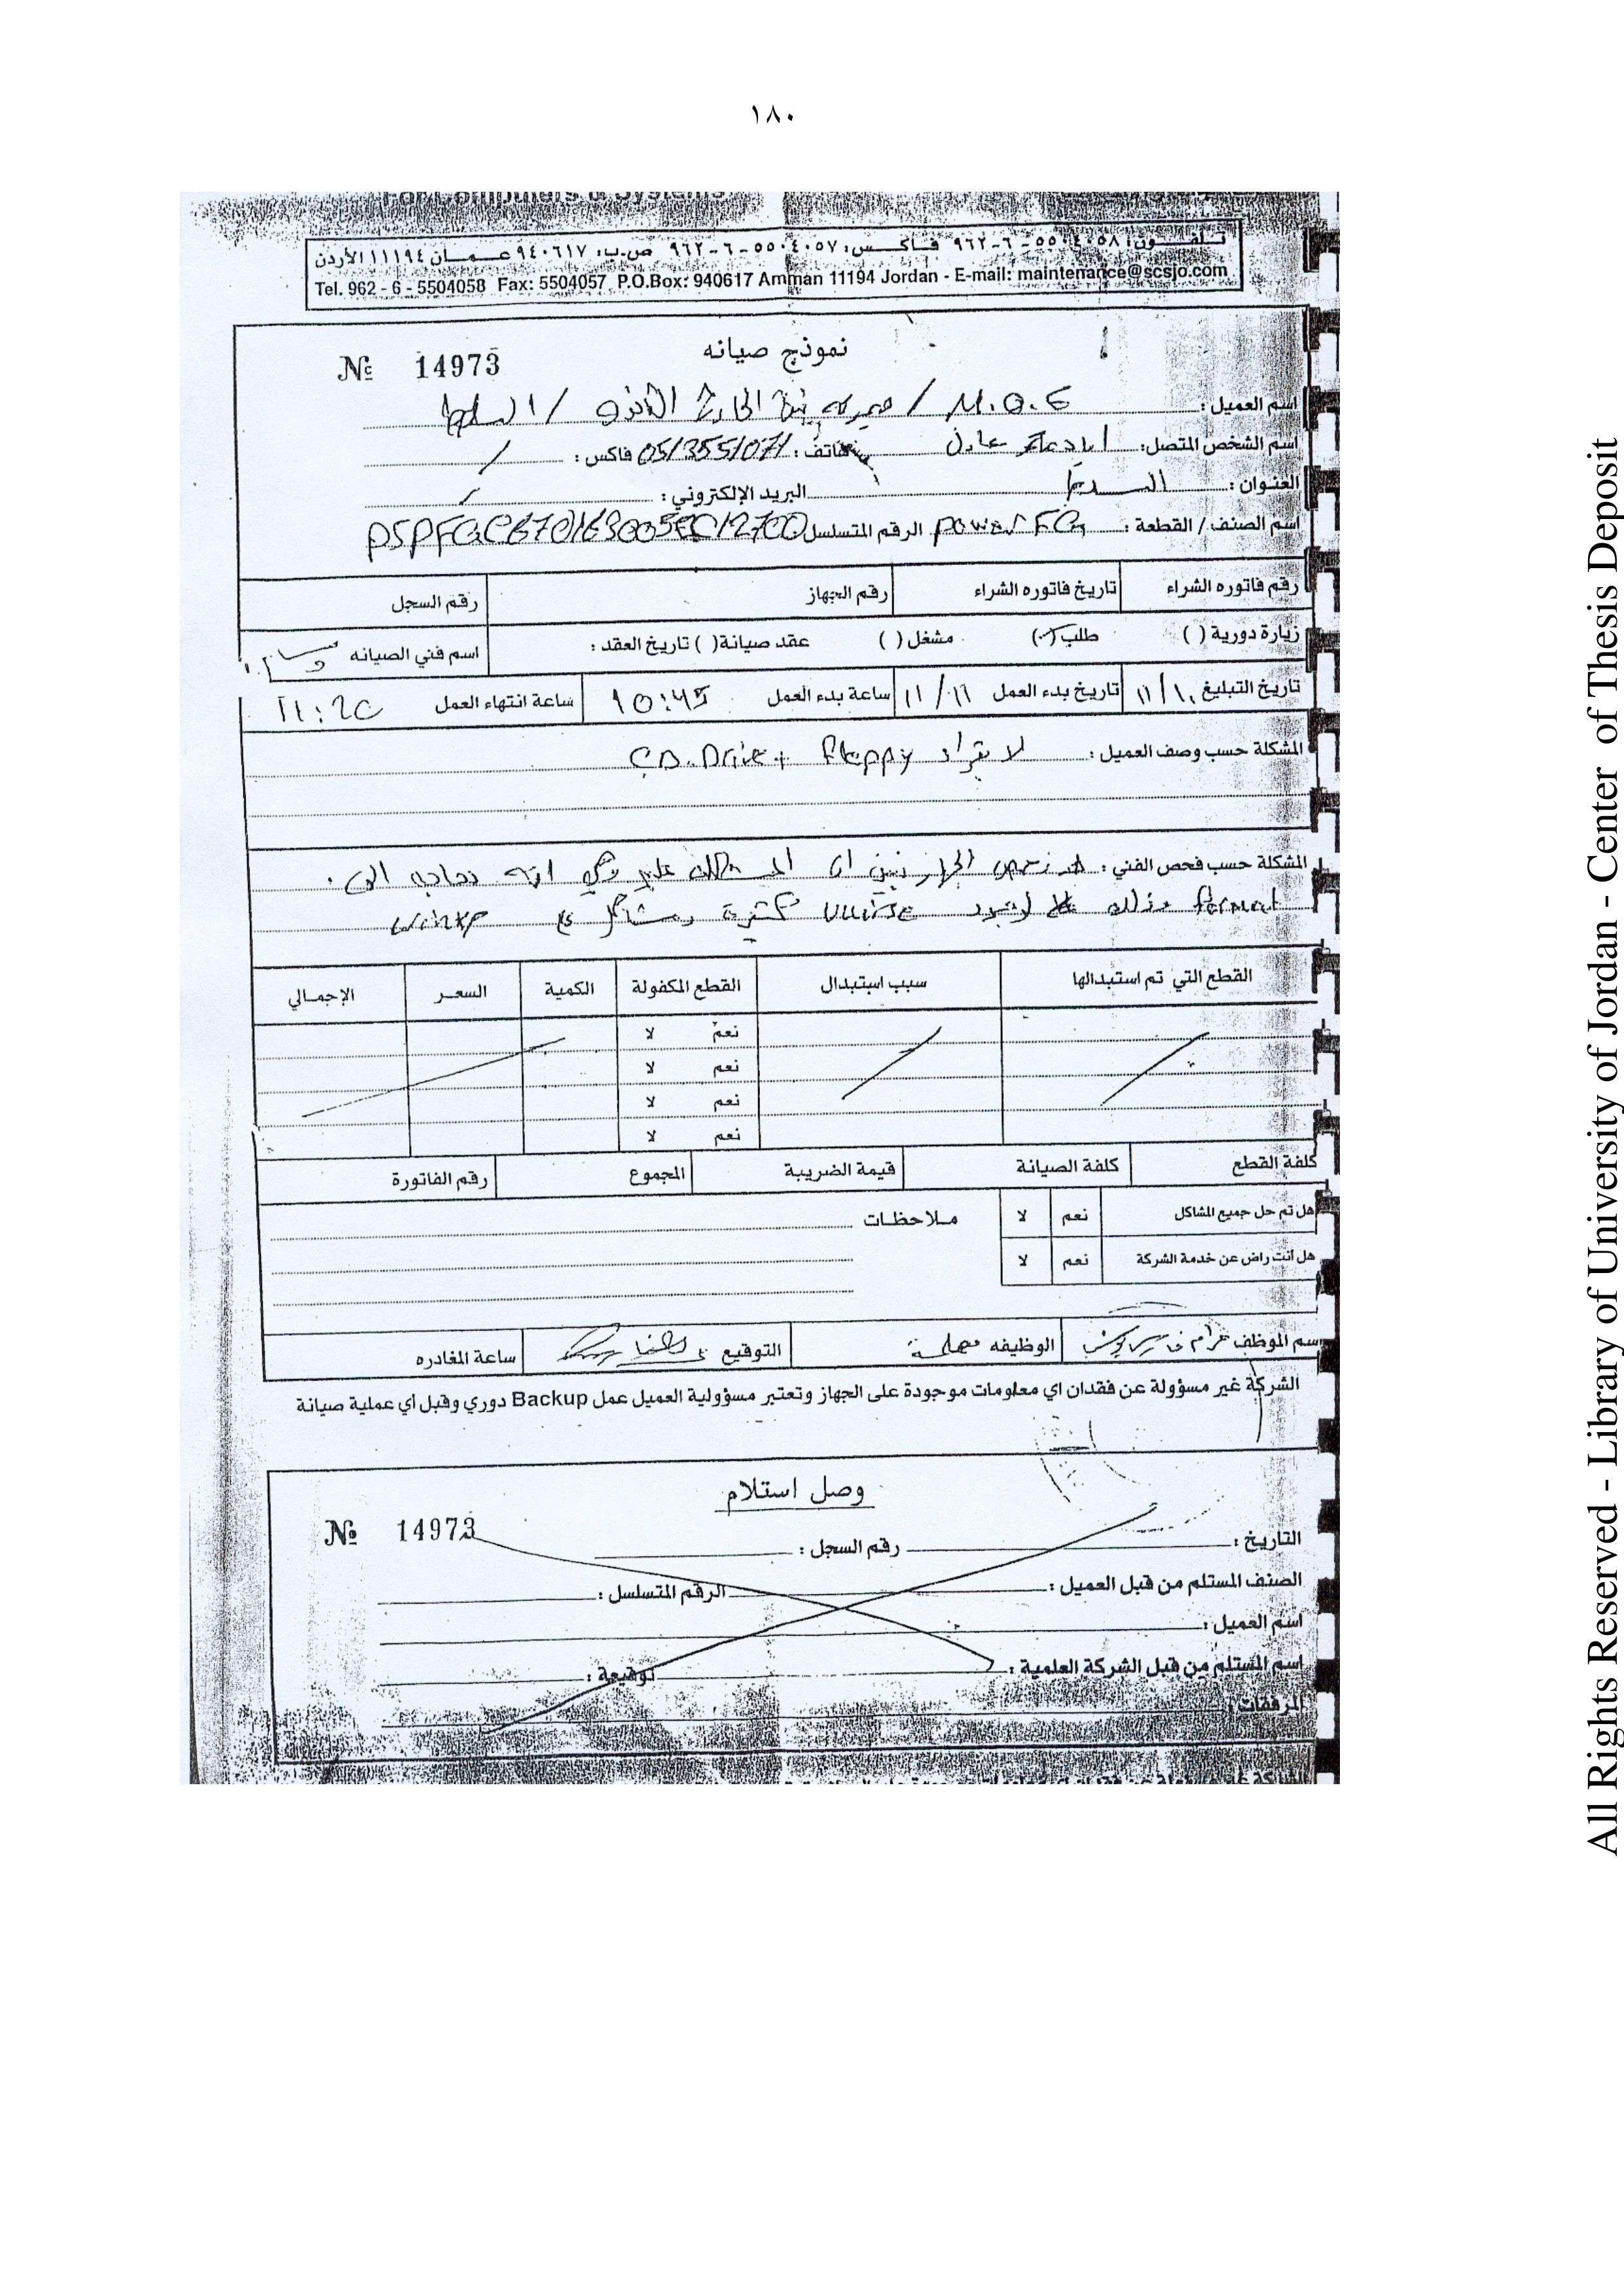 ١٨٠
For Computers & Systems
تلفــون: ٥٥٠٤٠٥٨-٦-٩٦٢ فـاكــس: ٥٥٠٤٠٥٧-٦-٩٦٢ ص.ب: ٩٤٠٦١٧ عـمــان ١١١٩٤ الأردن
Tel. 962 - 6 - 5504058 Fax: 5504057 P.O.Box: 940617 Amman 11194 Jordan - E-mail: maintenance@scsjo.com
نموذج صيانه
№ 14973
اسم العميل : M.O.E / السلط
اسم الشخص المتصل: عادل هاتف : 05/3551071 فاكس : /
العنوان : البريد الإلكتروني : /
اسم الصنف / القطعة : power الرقم المتسلسل
رقم فاتوره الشراء تاريخ فاتوره الشراء رقم الجهاز رقم السجل
زيارة دورية ( ) طلب ( ) مشغل ( ) عقد صيانة ( ) تاريخ العقد : اسم فني الصيانه
تاريخ التبليغ ١١/١٠ تاريخ بدء العمل ١١/١٦ ساعة بدء العمل 10:45 ساعة انتهاء العمل 11:20
المشكلة حسب وصف العميل : لا CD.Drive + floppy
المشكلة حسب فحص الفني : الجهاز تبين ان المشكله انه بحاجه الى
format وذلك لوجود كثيرة ومشاكل winxp
القطع التي تم استبدالها سبب استبدال القطع المكفولة الكمية السعـر الإجمـالي
نعم لا
نعم لا
نعم لا
نعم لا
كلفة القطع كلفة الصيانة قيمة الضريبة المجموع رقم الفاتورة
هل تم حل جميع المشاكل نعم لا مـلاحظـات
هل انت راض عن خدمة الشركة نعم لا
اسم الموظف الوظيفه معلمة التوقيع ساعة المغادره
الشركة غير مسؤولة عن فقدان اي معلومات موجودة على الجهاز وتعتبر مسؤولية العميل عمل Backup دوري وقبل أي عملية صيانة
وصل استلام
№ 14973
التاريخ : رقم السجل :
الصنف المستلم من قبل العميل : الرقم المتسلسل :
اسم العميل :
اسم المستلم من قبل الشركة العلمية : توقيعة :
المرفقات :
All Rights Reserved - Library of University of Jordan - Center of Thesis Deposit